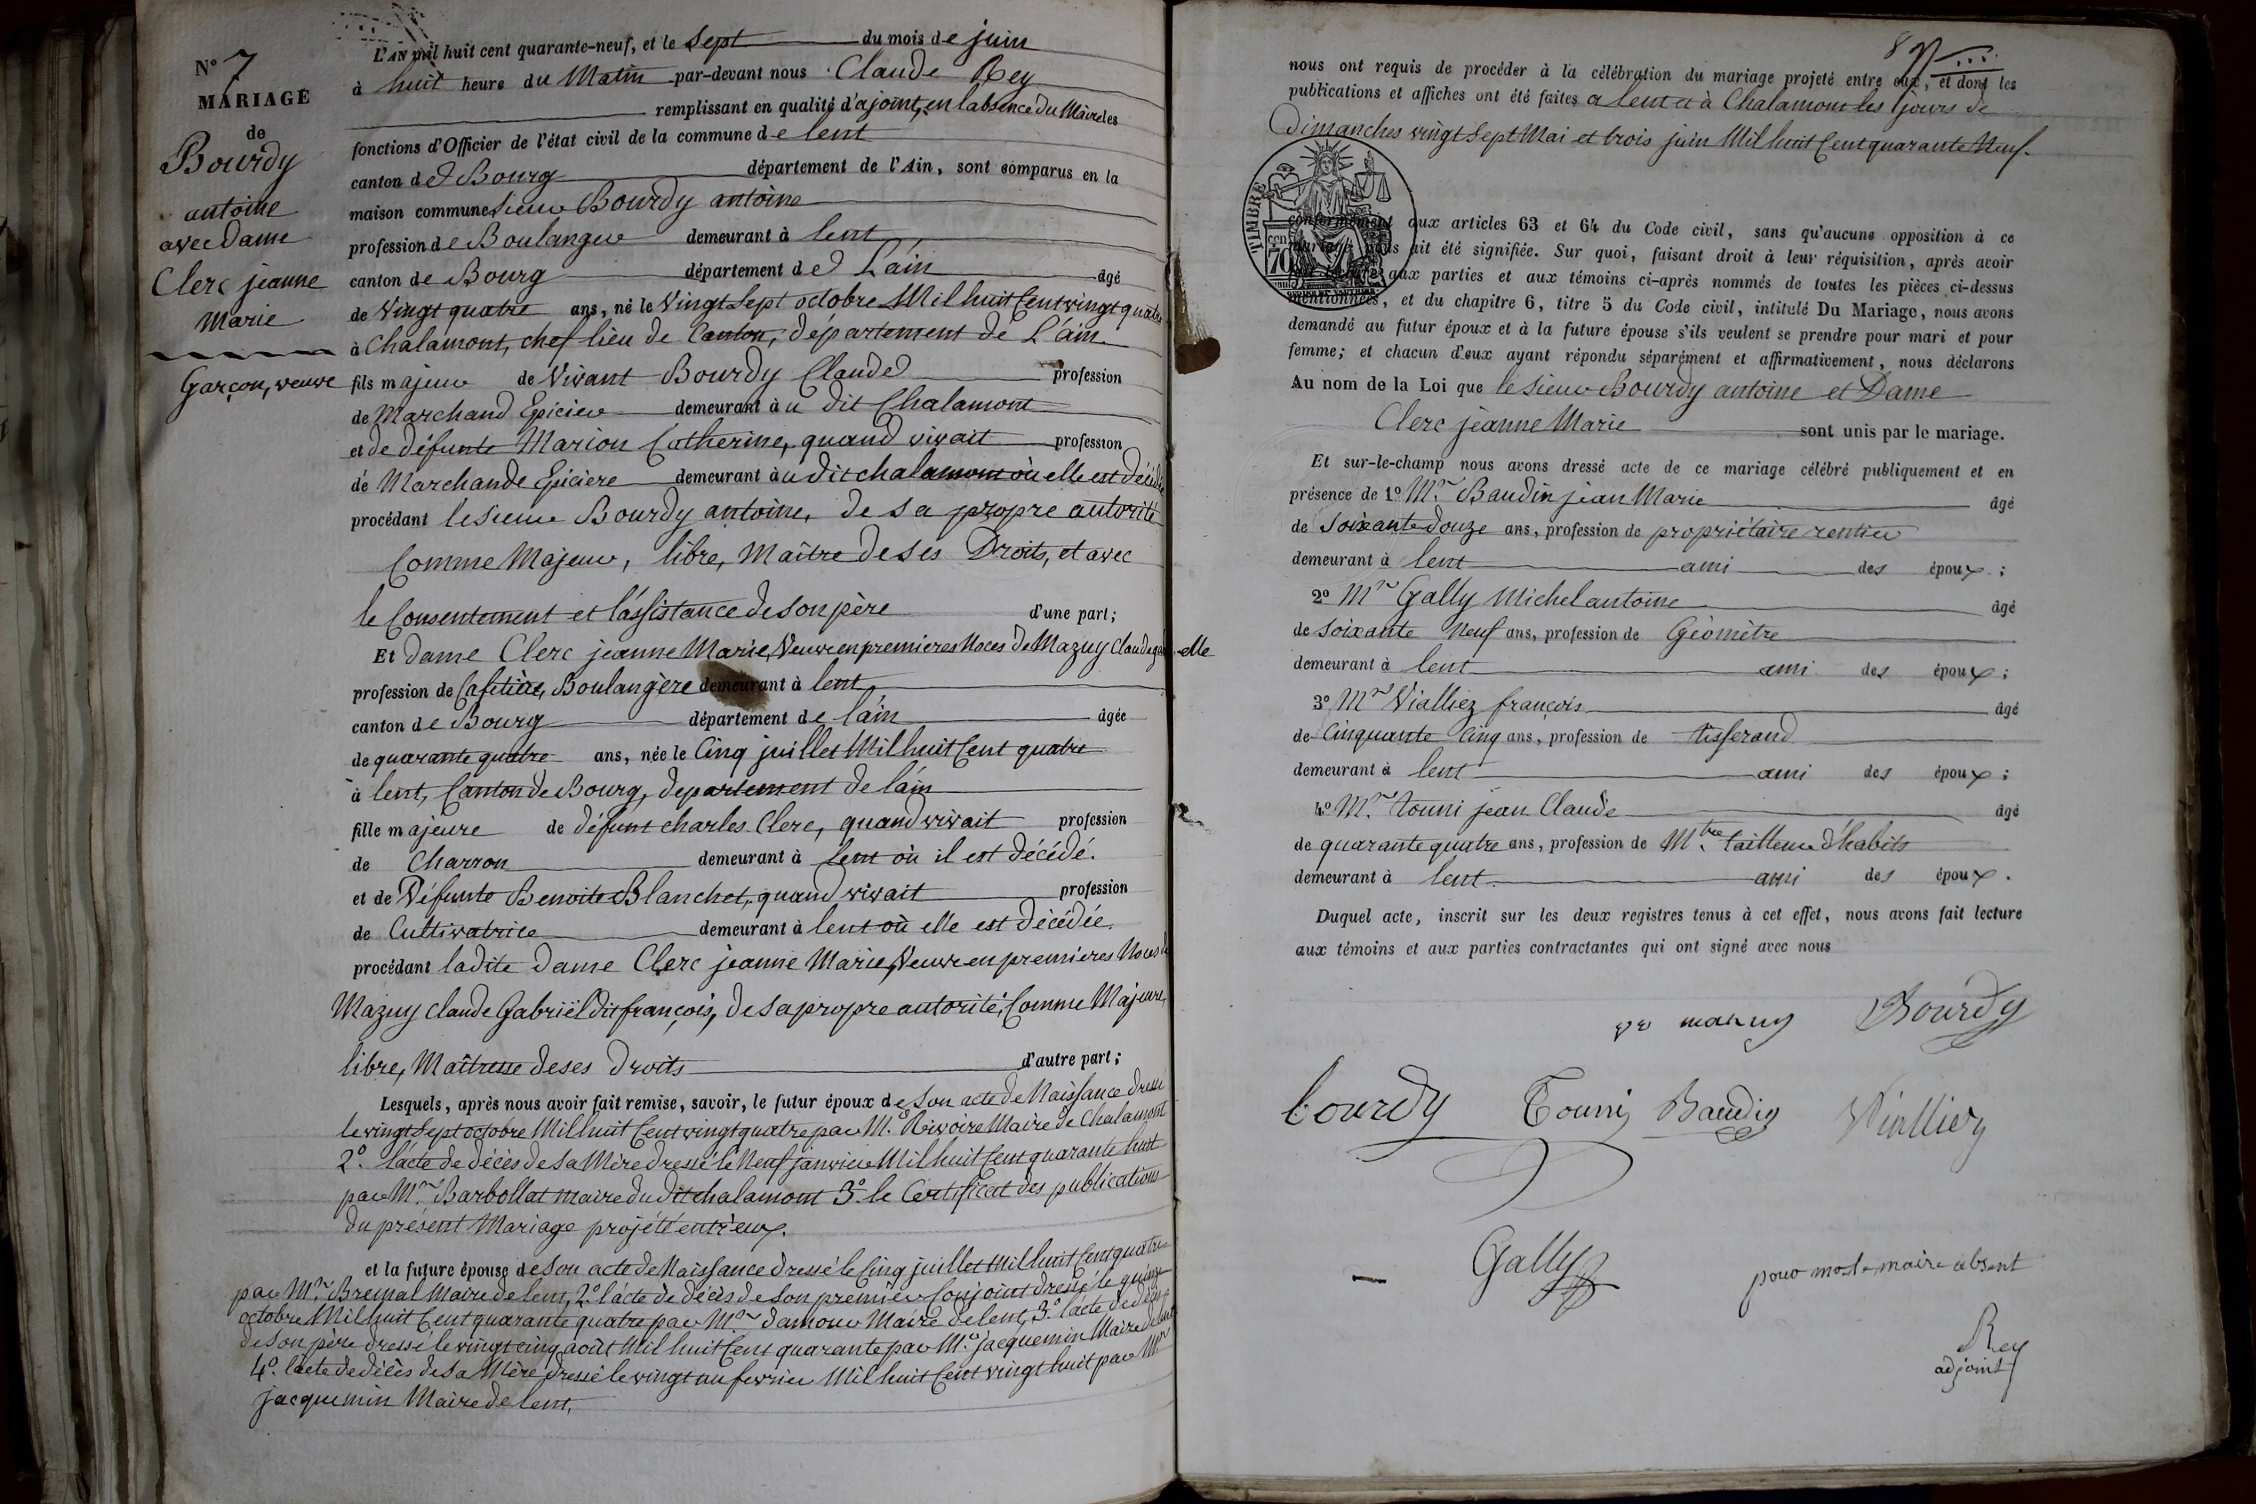 N° 7
MARIAGE
de
Bourdy
antoine
avec Dame
Clerc jeanne
Marie
Garçon, veuve
L'AN mil huit cent quarante-neuf, et le Sept du mois de juin
à huit heure du Matin par-devant nous Claude Rey
remplissant en qualité d'ajoint, en l'absence du Maire les
fonctions d'Officier de l'état civil de la commune de lent
canton de Bourg département de l'Ain, sont comparus en la
maison commune Sieur Bourdy antoine
profession de Boulanger demeurant à lent
canton de Bourg département de L'ain âgé
de Vingt quatre ans, né le Vingt Sept octobre Mil huit Cent vingt quatre
à Chalamont, chef lieu de Canton, département de L'ain
fils majeur de Vivant Bourdy Claude profession
de Marchand Epicier demeurant à u dit Chalamont
et de défunte Marion Catherine, quand vivait profession
de Marchande Epiciere demeurant à u dit chalamont où elle est décédée
procédant le Sieur Bourdy antoine, de sa propre autorité
Comme Majeur, libre, Maître de ses Droits, et avec
le Consentement et l'assistance de son père d'une part;
Et dame Clerc jeanne Marie, Veuve en premieres Noces de Mazuy Claude gabrielle
profession de Cafetière, Boulangère demeurant à lent
canton de Bourg département de l'ain âgée
de quarante quatre ans, née le Cinq juillet Mil huit Cent quatre
à lent, Canton de Bourg, departement de l'ain
fille majeure de défunt charles Clerc, quand vivait profession
de Charron demeurant à lent où il est décédé.
et de Défunte Benoite Blanchet, quand vivait profession
de Cultivatrice demeurant à lent où elle est décédée.
procédant ladite Dame Clerc jeanne Marie, Veuve en premières Noces de
Mazuy Claude Gabriël dit françois, de sa propre autorité, Comme Majeure,
libre, Maîtresse de ses Droits d'autre part;
Lesquels, après nous avoir fait remise, savoir, le futur époux de son acte de Naissance dressé
le vingt Sept octobre Mil huit Cent vingt quatre par Mr. Rivoire Maire de Chalamont
2°. l'acte de décès de sa Mère dressé le Neuf janvier Mil huit Cent quarante huit
par Mr. Barbollat maire du dit chalamont 3°. le Certificat des publications
du présent Mariage projété entr'eux.
et la future épouse de son acte de Naissance dressé le Cinq juillet Mil huit Cent quatre
par Mr. Breynal Maire de lent, 2°. l'acte de décès de son premier Conjoint dressé le quinze
octobre Mil huit Cent quarante quatre par Mr. Damour Maire de lent, 3°. l'acte de décès
de son père dressé le vingt cinq août Mil huit Cent quarante par Mr. jacquemin Maire de lent
4°. l'acte de décès de sa Mère dressé le vingt un fevrier Mil huit Cent vingt huit par Mr.
jacquemin Maire de lent.
8
nous ont requis de procéder à la célébration du mariage projeté entre eux, et dont les
publications et affiches ont été faites a lent et à Chalamont les jours de
Dimanches vingt Sept Mai et trois juin Mil huit Cent quarante Neuf.
TIMBRE
70
conformément aux articles 63 et 64 du Code civil, sans qu'aucune opposition à ce
mariage nous ait été signifiée. Sur quoi, faisant droit à leur réquisition, après avoir
aux parties et aux témoins ci-après nommés de toutes les pièces ci-dessus
mentionnées, et du chapitre 6, titre 5 du Code civil, intitulé Du Mariage, nous avons
demandé au futur époux et à la future épouse s'ils veulent se prendre pour mari et pour
femme; et chacun d'eux ayant répondu séparément et affirmativement, nous déclarons
Au nom de la Loi que le Sieur Bourdy antoine et Dame
Clerc jeanne Marie sont unis par le mariage.
Et sur-le-champ nous avons dressé acte de ce mariage célébré publiquement et en
présence de 1° Mr. Baudin jean Marie âgé
de Soixante Douze ans, profession de propriétaire rentier
demeurant à lent ami des époux;
2° Mr Gally Michel antoine âgé
de soixante Neuf ans, profession de Géomètre
demeurant à lent ami des époux;
3° Mr Vialliez françois âgé
de Cinquante Cinq ans, profession de tisserand
demeurant à lent ami des époux;
4° Mr. touni jean Claude âgé
de quarante quatre ans, profession de Mtre. tailleur d'habits
demeurant à lent ami des époux.
Duquel acte, inscrit sur les deux registres tenus à cet effet, nous avons fait lecture
aux témoins et aux parties contractantes qui ont signé avec nous
ve mazuy Bourdy
bourdy Touni Baudin Vialliez
Gally pour mosr le maire absent
Rey
adjoint